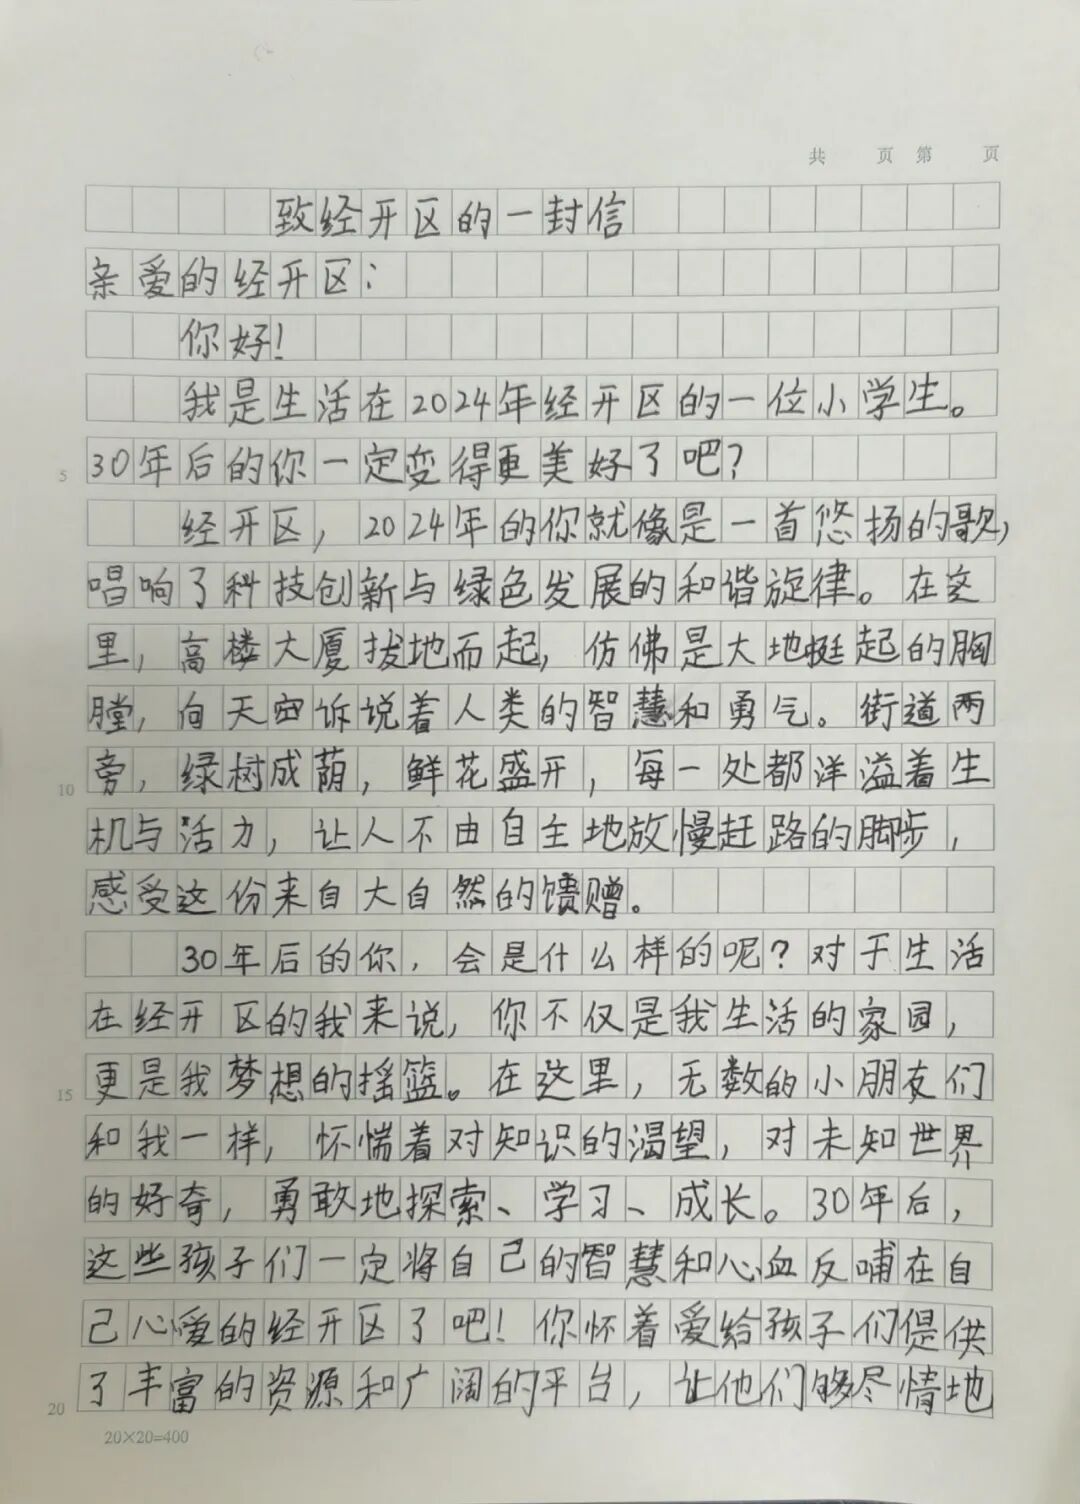 共 页 第 页
致经开区的一封信
亲爱的经开区：
你好！
我是生活在2024年经开区的一位小学生。
30年后的你一定变得更美好了吧？
5
经开区，2024年的你就像是一首悠扬的歌，
唱响了科技创新与绿色发展的和谐旋律。在这
里，高楼大厦拔地而起，仿佛是大地挺起的胸
膛，向天空诉说着人类的智慧和勇气。街道两
旁，绿树成荫，鲜花盛开，每一处都洋溢着生
10
机与活力，让人不由自主地放慢赶路的脚步，
感受这份来自大自然的馈赠。
30年后的你，会是什么样的呢？对于生活
在经开区的我来说，你不仅是我生活的家园，
更是我梦想的摇篮。在这里，无数的小朋友们
15
和我一样，怀惴着对知识的渴望，对未知世界
的好奇，勇敢地探索、学习、成长。30年后，
这些孩子们一定将自己的智慧和心血反哺在自
己心爱的经开区了吧！你怀着爱给孩子们提供
了丰富的资源和广阔的平台，让他们够尽情地
20
20×20=400